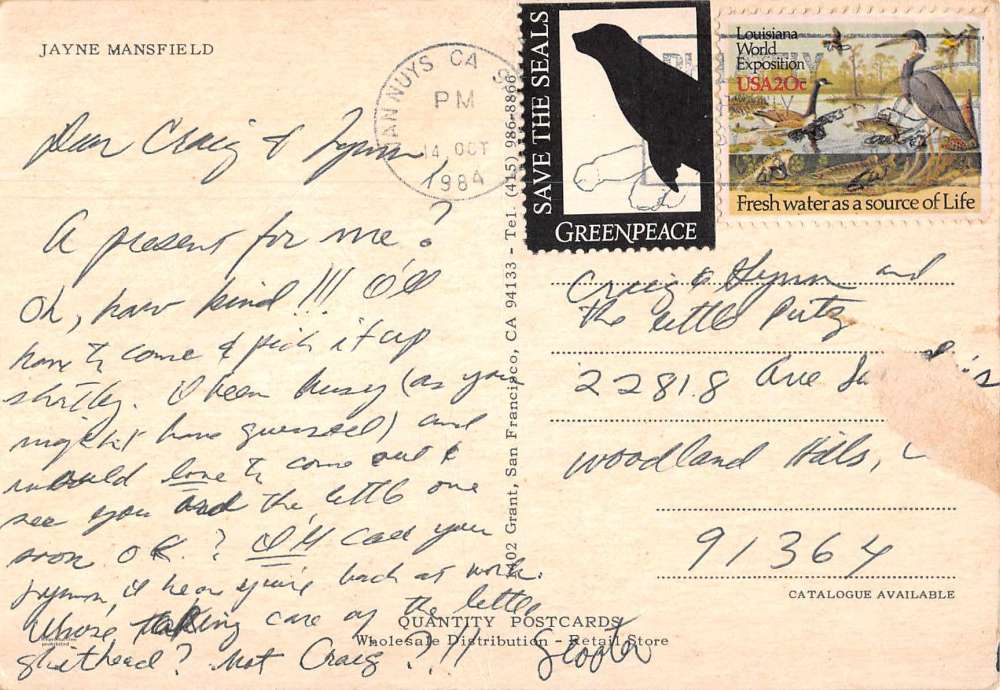 JAYNE MANSFIELD
VAN NUYS CA
PM
14 OCT
1984
SAVE THE SEALS
GREENPEACE
Louisiana
World
Exposition
USA 20c
Fresh water as a source of Life
Dear Craig & Lynn
A present for me?
Oh, how kind!!! I'll
have to come & pick it up
shortly. I been busy (as you
might have guessed) and
would love to come out &
see you and the little one
soon OK? I'll call you
Lynn, I hear you're back at work.
Whose taking care of the little
shithead? Not Craig?!!
Scooter
Craig & Lynn and
the little Putz
22818 Ave
Woodland Hills,
91364
1402 Grant, San Francisco, CA 94133 - Tel. (415) 986-8866
CATALOGUE AVAILABLE
QUANTITY POSTCARDS
Wholesale Distribution - Retail Store